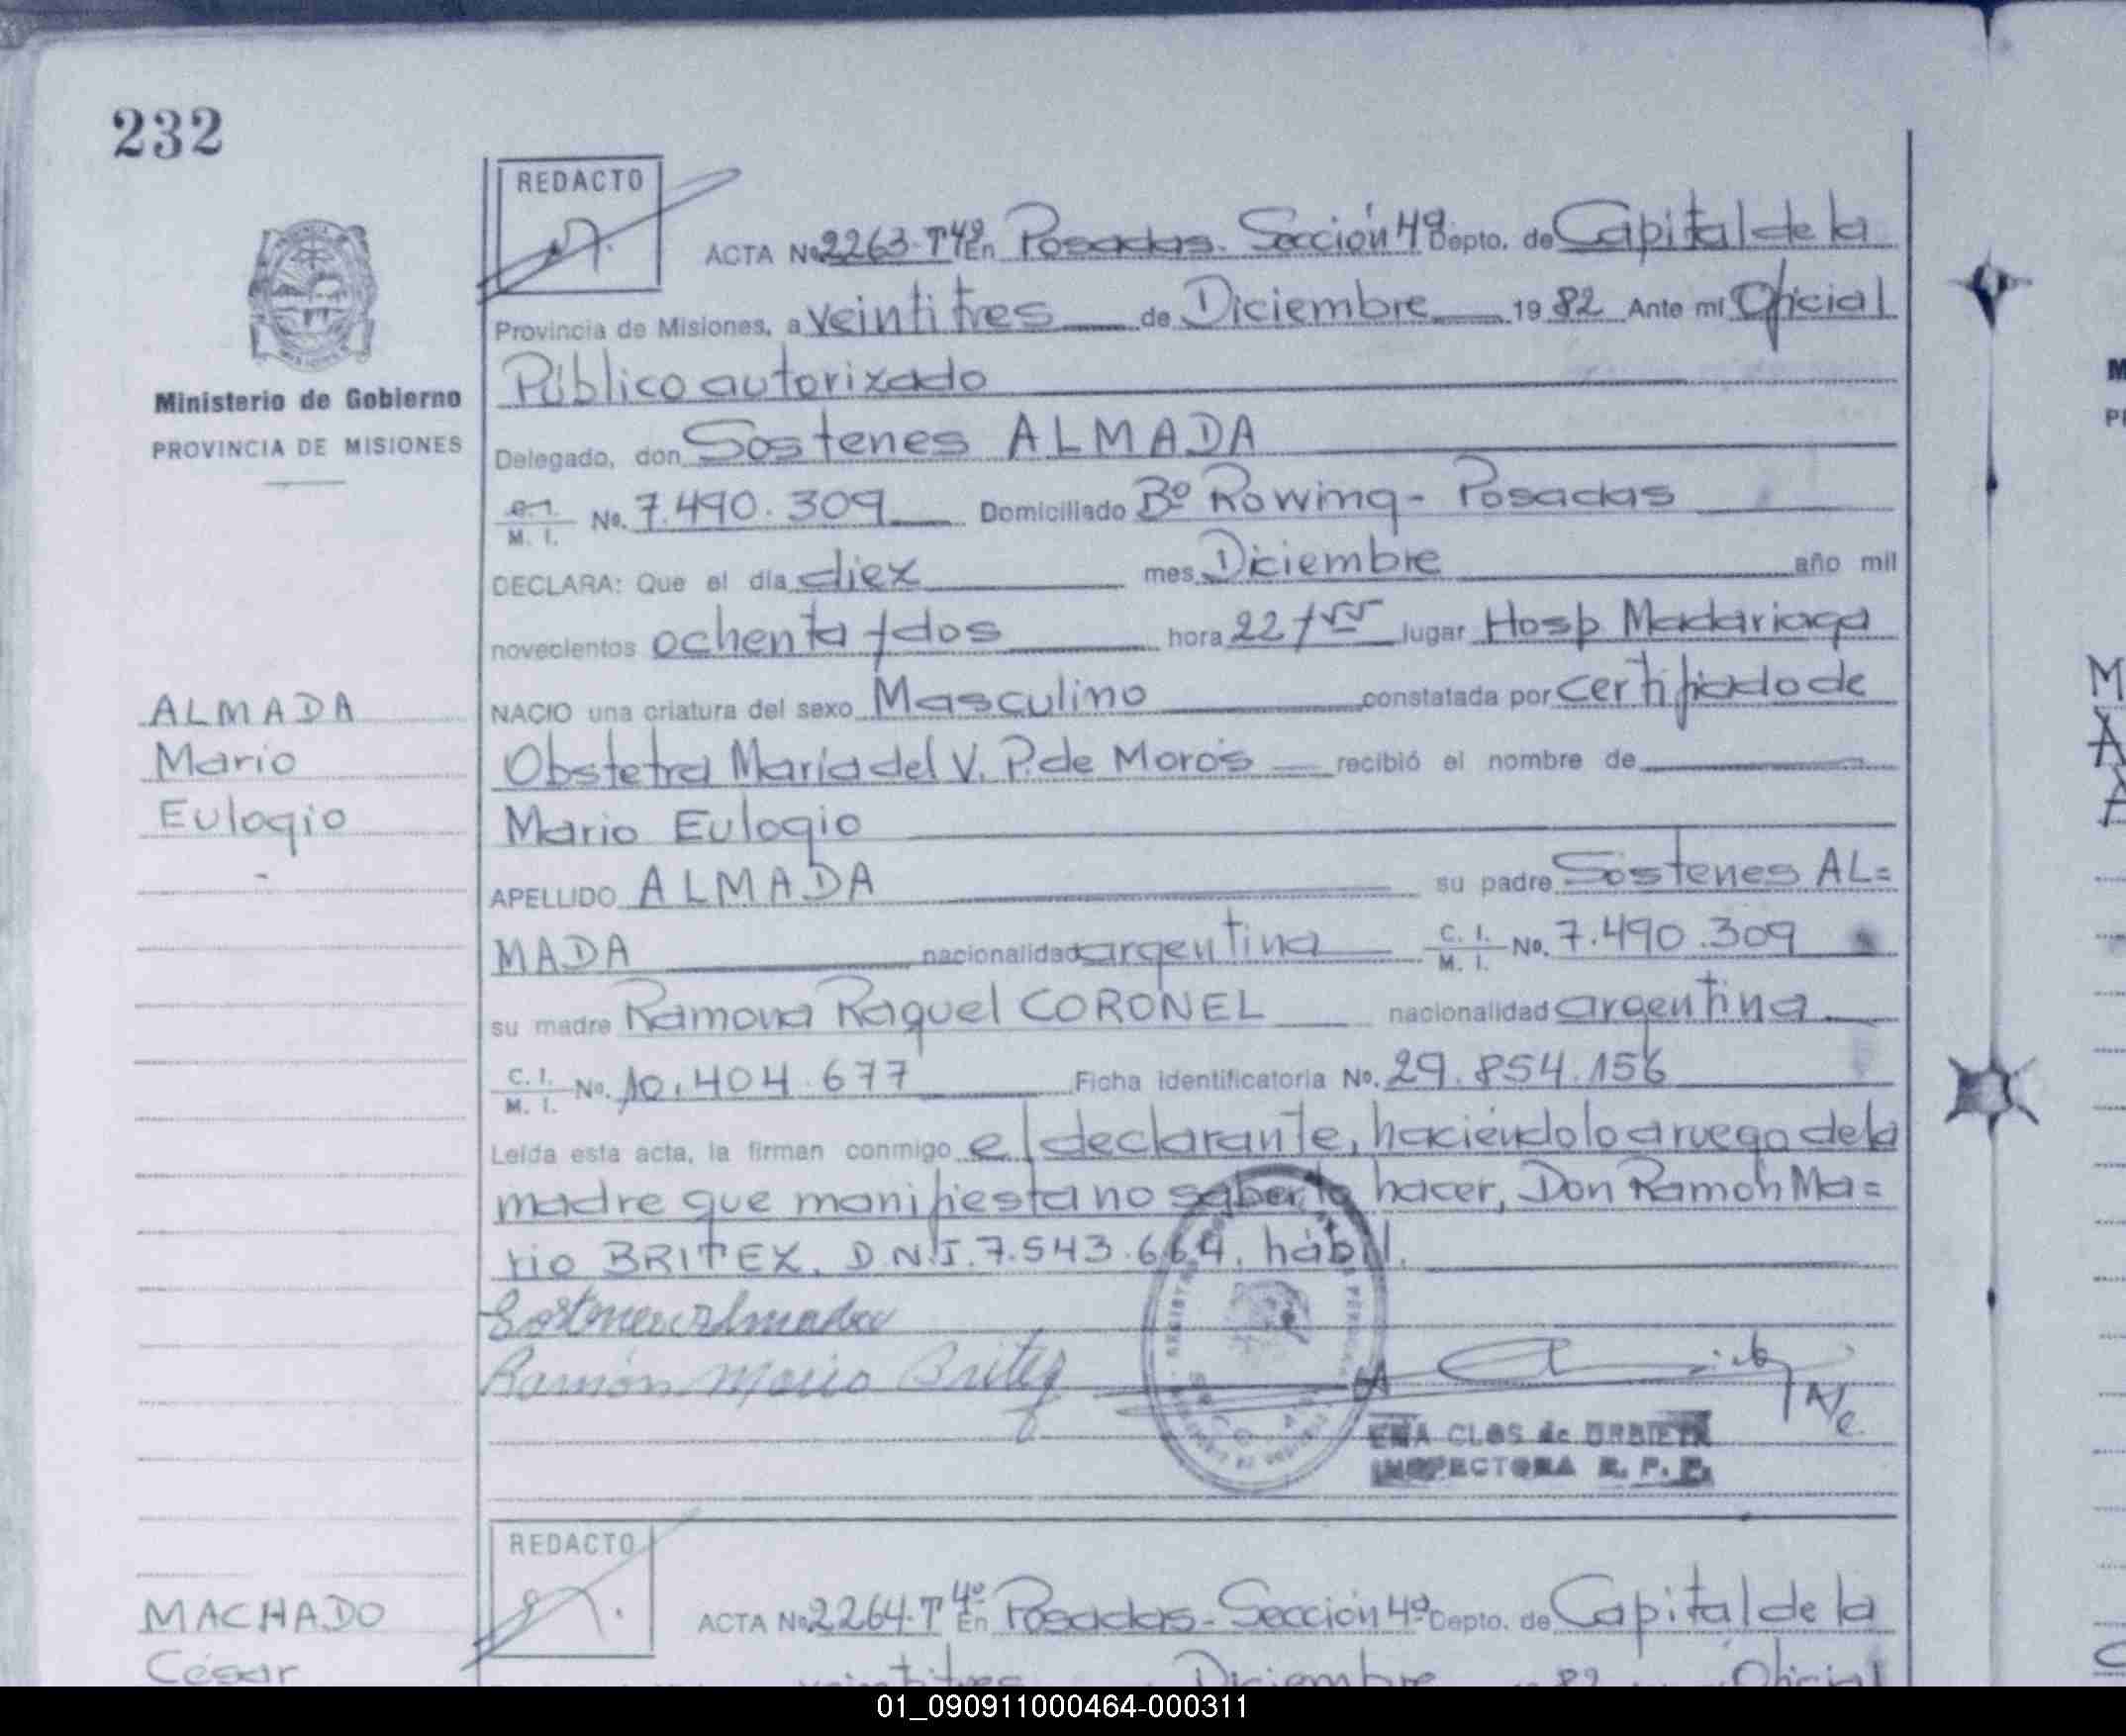 232
REDACTO
ACTA No. 2263-T 4º En Posadas - Sección 4ª Depto. de Capital de la
Provincia de Misiones, a veintitres de Diciembre 1982 Ante mí Oficial
Público autorizado
Ministerio de Gobierno
PROVINCIA DE MISIONES
Delegado, don Sostenes ALMADA
M. I. No. 7.490.309 Domiciliado Bº Rowing - Posadas
DECLARA: Que el día diez mes Diciembre año mil
novecientos ochenta y dos hora 22 y 55 lugar Hosp Madariaga
ALMADA
Mario
Eulogio
NACIO una criatura del sexo Masculino constatada por certificado de
Obstetra María del V. P. de Moros recibió el nombre de
Mario Eulogio
APELLIDO ALMADA su padre Sostenes AL=
MADA nacionalidad argentina C. I. M. I. No. 7.490.309
su madre Ramona Raquel CORONEL nacionalidad argentina
C. I. M. I. No. 10.404.677 Ficha identificatoria No. 29.854.156
Leída esta acta, la firman conmigo el declarante, haciéndolo a ruego de la
madre que manifiesta no saberlo hacer, Don Ramón Ma=
rio BRITEZ, D.N.I. 7.543.664, hábil.
Sostenes Almada
Ramón Mario Britez
EMA CLOS de URBIETA
INSPECTORA R. P. P.
REDACTO
MACHADO
César
ACTA No. 2264-T 4º En Posadas - Sección 4ª Depto. de Capital de la
veintitres Diciembre 82 Oficial
01_090911000464-000311